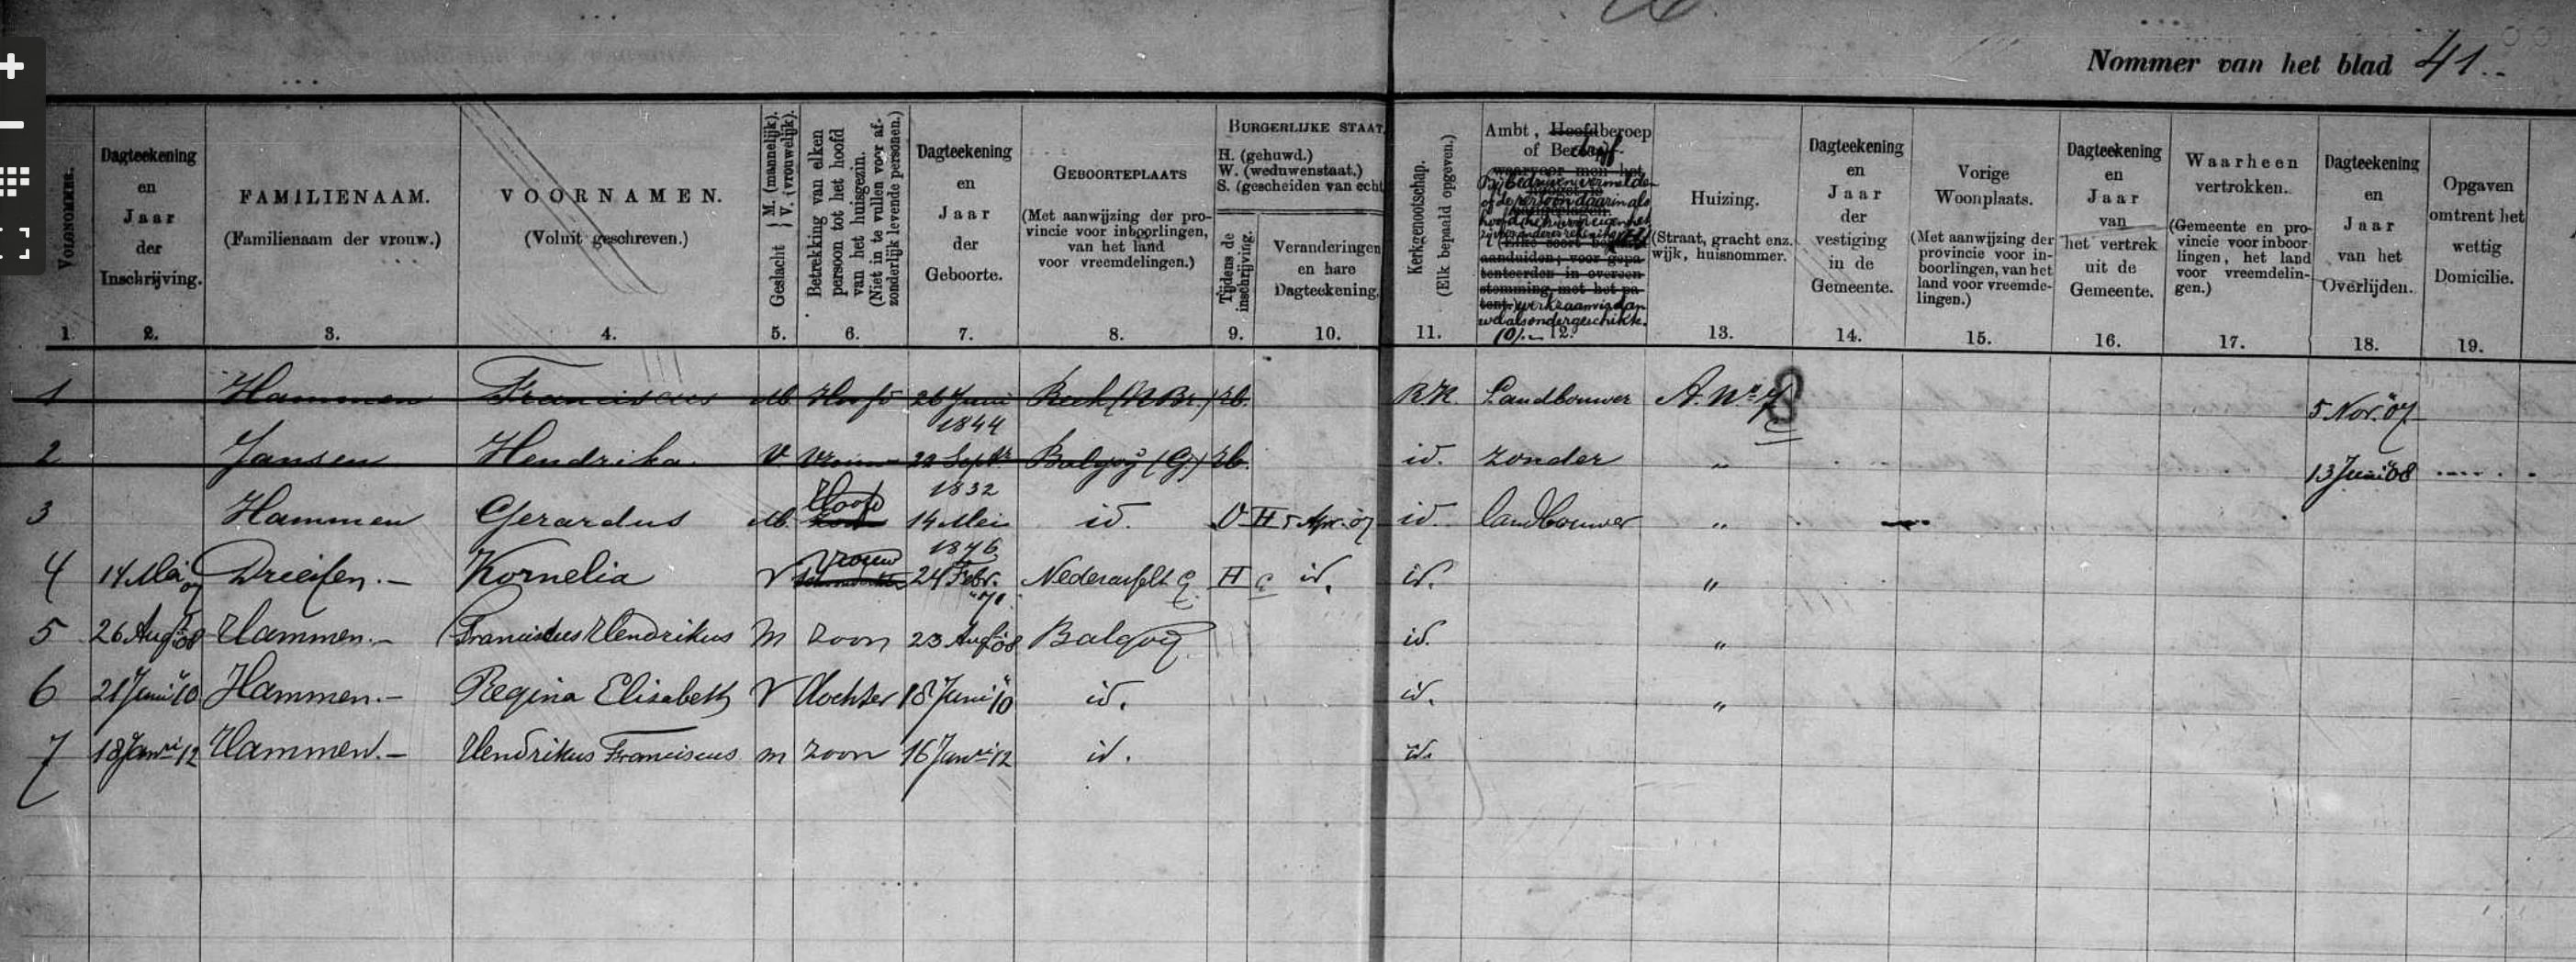 Nommer van het blad 41.
VOLGNOMMER.
Dagteekening en Jaar der Inschrijving.
FAMILIENAAM.
(Familienaam der vrouw.)
VOORNAMEN.
(Voluit geschreven.)
Geslacht { M. (mannelijk). V. (vrouwelijk).
Betrekking van elken persoon tot het hoofd van het huisgezin.
(Niet in te vullen voor afzonderlijk levende personen.)
Dagteekening en Jaar der Geboorte.
GEBOORTEPLAATS
(Met aanwijzing der provincie voor inboorlingen, van het land voor vreemdelingen.)
BURGERLIJKE STAAT
H. (gehuwd.)
W. (weduwenstaat.)
S. (gescheiden van echt
Tijdens de inschrijving.
Veranderingen en hare Dagteekening.
Kerkgenootschap.
(Elk bepaald opgeven.)
Ambt, Hoofdberoep of
Huizing.
(Straat, gracht enz. wijk, huisnommer.)
Dagteekening en Jaar der vestiging in de Gemeente.
Vorige Woonplaats.
(Met aanwijzing der provincie voor inboorlingen, van het land voor vreemdelingen.)
Dagteekening en Jaar van het vertrek uit de Gemeente.
Waarheen vertrokken.
(Gemeente en provincie voor inboorlingen, het land voor vreemdelingen.)
Dagteekening en Jaar van het Overlijden.
Opgaven omtrent het wettig Domicilie.
1. 2. 3. 4. 5. 6. 7. 8. 9. 10. 11. 12. 13. 14. 15. 16. 17. 18. 19.
1 Hammen Franciscus M. Hoofd 26 Juni 1844 Reek (N.Br.) R.K. Landbouwer A. No. 5 Nov. 07
2 Jansen Hendrika. V Vrouw 22 Septr 1832 Balgoij (G) id. zonder " 13 Juni 08
3 Hammen Gerardus M. Hoofd 14 Mei 1876 id. O H 5 Apr. 07 id. landbouwer "
4 14 Mei 07 Kornelia V Vrouw 24 Febr. Nederasselt G. H G id. id. "
5 26 Aug 08 Hammen.- Franciscus Hendrikus M zoon 23 Aug 08 Balgoij id. "
6 21 Juni 10 Hammen.- Regina Elisabeth V dochter 18 Juni 10 id. id. "
7 18 Janri 12 Hammen.- Hendrikus Franciscus m zoon 16 Janri 12 id. id.